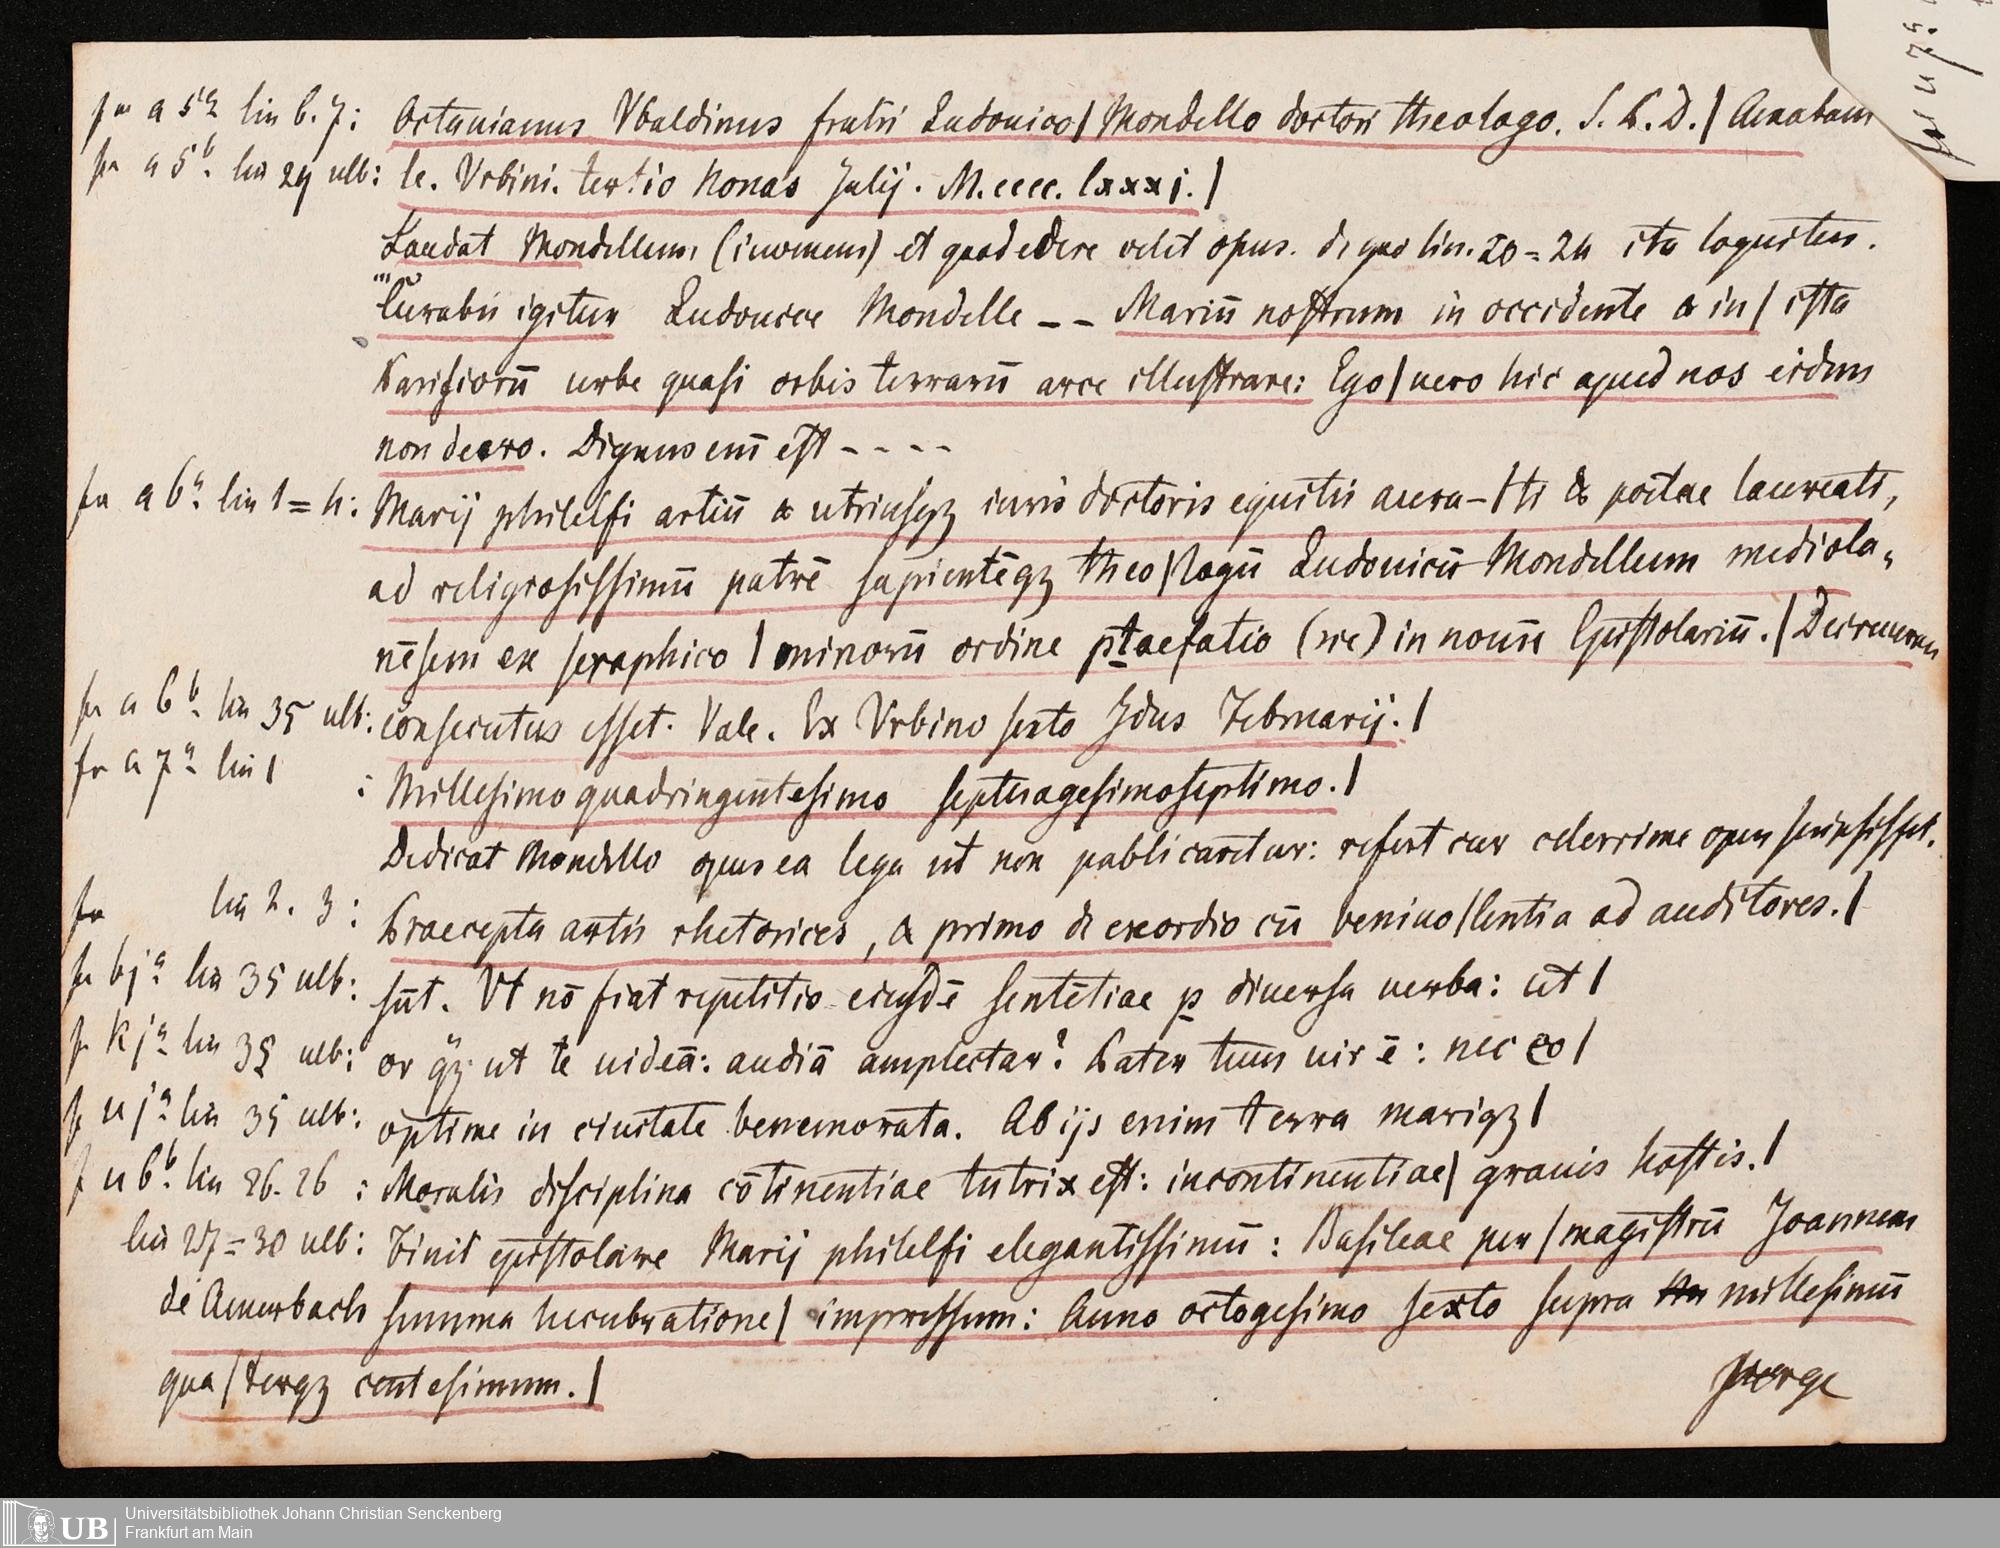 fa a 5ª lin 6. 7: Octauianus Vbaldinus fratri Ludouico | Mondello doctori theologo. S. P. D. | Amabam
fa a 5b. lin 29 ult: le. Vrbini. tertio Nonas Julij. M.cccc. lxxxj. |
Laudat Mondellum, (inuomens) et quod edere velit opus. de quo lin. 20 = 24 ita loquitur.
Curabis igitur Ludouice Mondelle – – Mariū nostrum in occidente & in | ista
Parisiorū urbe quasi orbis terrarū arce illustrare: Ego | uero hic apud nos eidem
non deero. Dignus eni est - - - -
fa a 6ª lin 1 = 4: Marij philelfi artiū & utriusqꝫ iuris doctoris equitis aura-|ti & poetae laureati,
ad religiosissimū patrē sapientēqꝫ theo|logū Ludouicū Mondellum mediola„
nēsem ex seraphico | minorū ordine ptaefatio (sre) in nouū Epistolariū. | Decreueram
fa a 6b. lin 35 ult: consecutus esset. Vale. Ex Vrbino sexto Jdus Februarij. |
fa a 7ª lin 1 : Millesimo quadringentesimo septuagesimoseptimo. |
Dedicat Mondello opus ea lege ut non publicaretur: refert cur celerrime opus scripsisset.
fa lin 2. 3: Praecepta artis rhetorices, & primo de exordio cū beniuo|lentia ad auditores. |
fa bjª lin 35 ult: sūt. Vt nō fiat repetitio eiusdē sentētiae p diuersa uerba: ut |
fa kjª lin 35 ult: or qꝫ ut te uideā: audiā amplectar? Pater tuus uir ē: nec eo |
fa ujª lin 35 ult: optime in ciuitate benemorata. Ab ijs enim terra mariqꝫ |
f u 6b lin 26. 26 : Moralis disciplina cōtinentiae tutrix est: incontinentiae | grauis hostis. |
lin 27 = 30 ult: Finit epistolare Marij philelfi elegantissimū: Basileae per | magistrū Joannem
de Amerbach summa lucubratione | impressum: Anno octogesimo sexto supra millesimū
qua | terqꝫ centesimum. |
UB Universitätsbibliothek Johann Christian Senckenberg
Frankfurt am Main